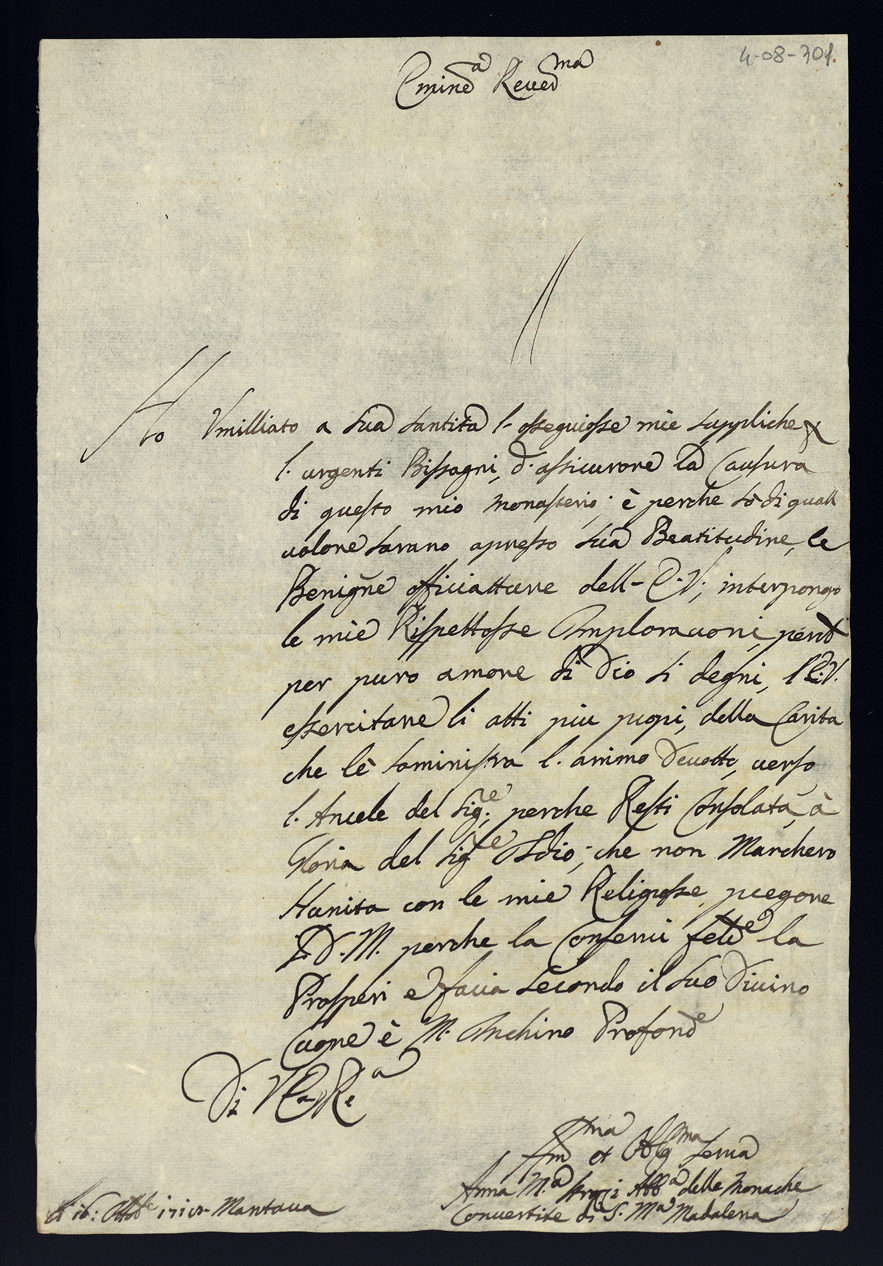 4-08-301.
Emin.a Reued.ma
Ho Vmilliato a Sua Santita l. osseguiosse mie suppliche
l. urgenti Bissogni, d. assicurore la Causura
di questo mio monasterio; è perche sò di quall
ualore sarano apresso Sua Beatitudine, le
Benigne officiatture dell- E.V; interpongo
le mie Rispettosse Imploracioni,
per puro amore di Dio si degni, l'E.V.
essercitare li atti piu propi, della Carita
che le Sominisstra l. animo Deuotto, uerso
l. Ancele del Sig.re; perche Resti Consolata, à
Gloria del Sig.re Idio; che non Marchero
Hunita con le mie Religiosse, pregare
S.D.M. perche la Conserui la
Prosperi e facia secondo il suo Diuino
Cuore è M. Inchino Profond.e
Di V.E. Re.a
et Obb.ma Serua
Anna M.a Abb.a delle Monache
Conuertite di S. M.a Madalena
li 16: Ottob.e Mantaua